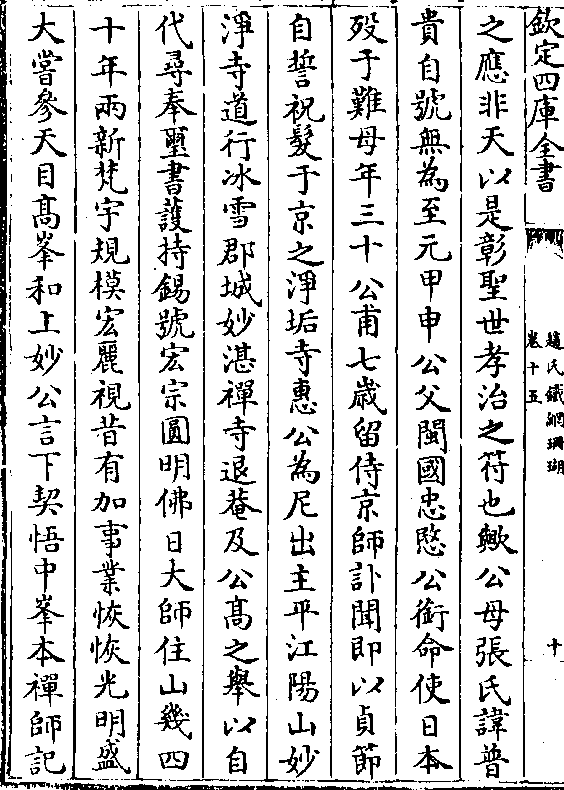 欽定四庫全書
趙氏鐵網珊瑚
卷十五
十
之應非天以是彰聖世孝治之符也歟公母張氏諱普
貴自號無為至元甲申公父閩國忠愍公銜命使日本
歿于難母年三十公甫七歲留侍京師訃聞即以貞節
自誓祝髮于京之淨垢寺惠公為尼出主平江陽山妙
淨寺道行冰雪郡城妙湛禪寺退菴及公高之舉以自
代尋奉璽書護持錫號宏宗圓明佛日大師住山幾四
十年兩新梵宇規模宏麗視昔有加事業恢恢光明盛
大嘗參天目高峯和上妙公言下契悟中峯本禪師記